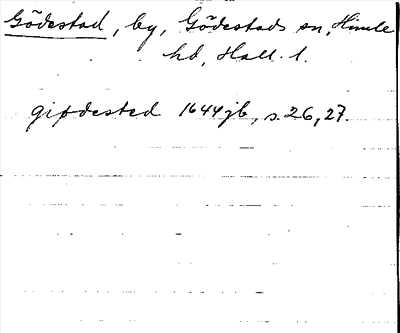 Gödestad, by, Gödestads sn, Himle
hd, Hall. l.
giødested 1644 jb, s. 26, 27.